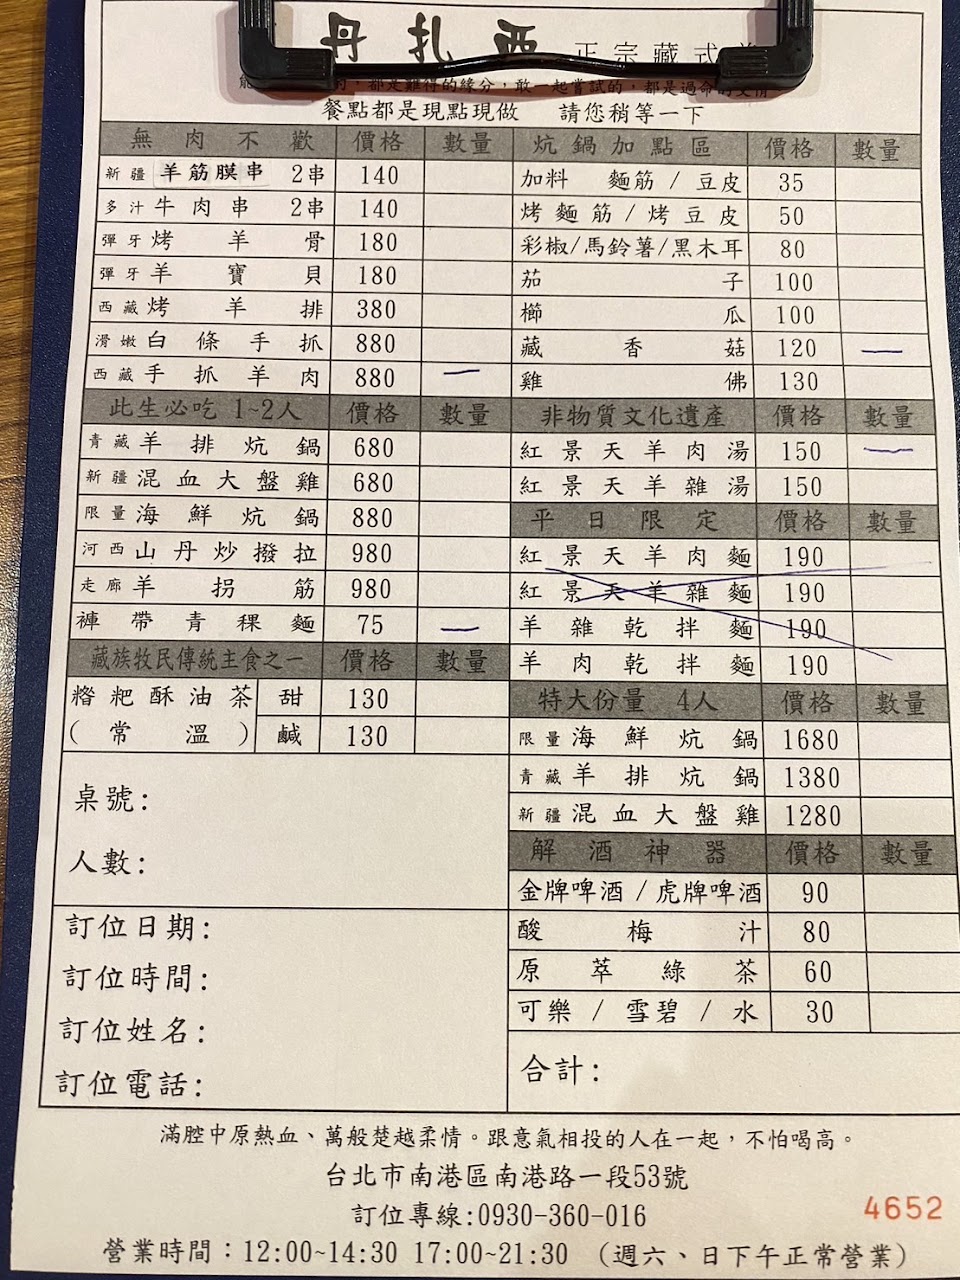 丹扎西 正宗藏式
都是難得的緣分，敢一起嘗試的，都是過命的交情
餐點都是現點現做 請您稍等一下
無肉不歡 價格 數量
新疆 羊筋膜串 2串 140
多汁 牛肉串 2串 140
彈牙 烤羊骨 180
彈牙 羊寶貝 180
西藏 烤羊排 380
滑嫩 白條手抓 880
西藏 手抓羊肉 880 一
此生必吃 1~2人 價格 數量
青藏 羊排炕鍋 680
新疆 混血大盤雞 680
限量 海鮮炕鍋 880
河西 山丹炒撥拉 980
走廊 羊拐筋 980
褲帶青稞麵 75 一
藏族牧民傳統主食之一 價格 數量
糌粑酥油茶 甜 130
(常溫) 鹹 130
桌號:
人數:
訂位日期:
訂位時間:
訂位姓名:
訂位電話:
炕鍋加點區 價格 數量
加料 麵筋/豆皮 35
烤麵筋/烤豆皮 50
彩椒/馬鈴薯/黑木耳 80
茄子 100
櫛瓜 100
藏香菇 120 一
雞佛 130
非物質文化遺產 價格 數量
紅景天羊肉湯 150 一
紅景天羊雜湯 150
平日限定 價格 數量
紅景天羊肉麵 190
紅景天羊雜麵 190
羊雜乾拌麵 190
羊肉乾拌麵 190
特大份量 4人 價格 數量
限量 海鮮炕鍋 1680
青藏 羊排炕鍋 1380
新疆 混血大盤雞 1280
解酒神器 價格 數量
金牌啤酒/虎牌啤酒 90
酸梅汁 80
原萃綠茶 60
可樂/雪碧/水 30
合計:
滿腔中原熱血、萬般楚越柔情。跟意氣相投的人在一起，不怕喝高。
台北市南港區南港路一段53號
訂位專線:0930-360-016
4652
營業時間：12:00~14:30 17:00~21:30 (週六、日下午正常營業)